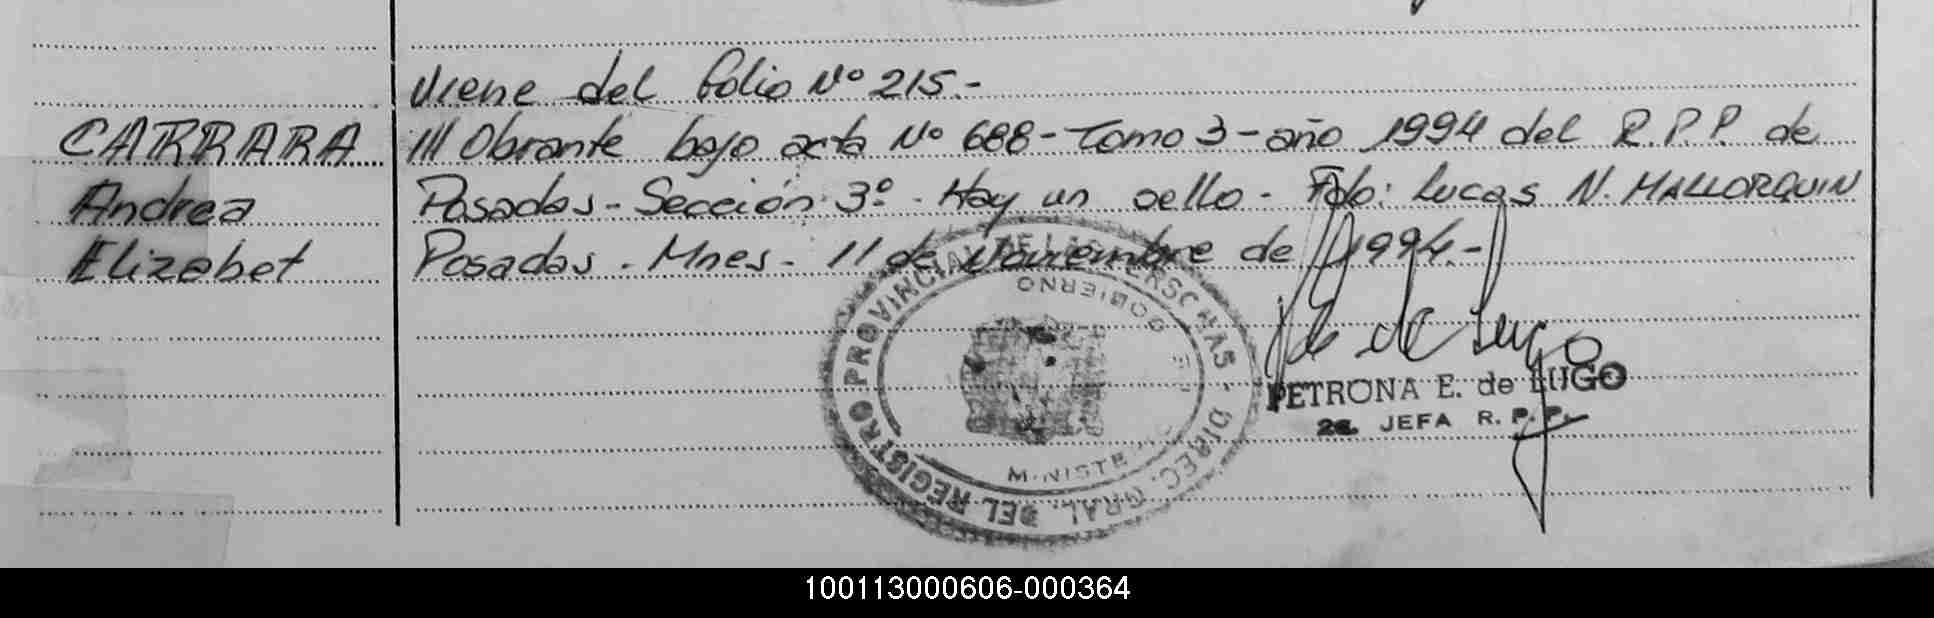 Viene del folio Nº 215.-
CARRARA
Andrea
Elizabet
III Obrante bajo acta Nº 688 - Tomo 3 - año 1994 del R.P.P. de
Posadas - Sección 3º. Hay un sello - Fdo: Lucas N. MALLORQUIN
Posadas. Mnes - 11 de Noviembre de 1994.-
REGISTRO PROVINCIAL DE LAS PERSONAS - DIREC. GRAL. DEL
MINISTERIO DE GOBIERNO
PETRONA E. de LUGO
2a JEFA R. P. P.
100113000606-000364